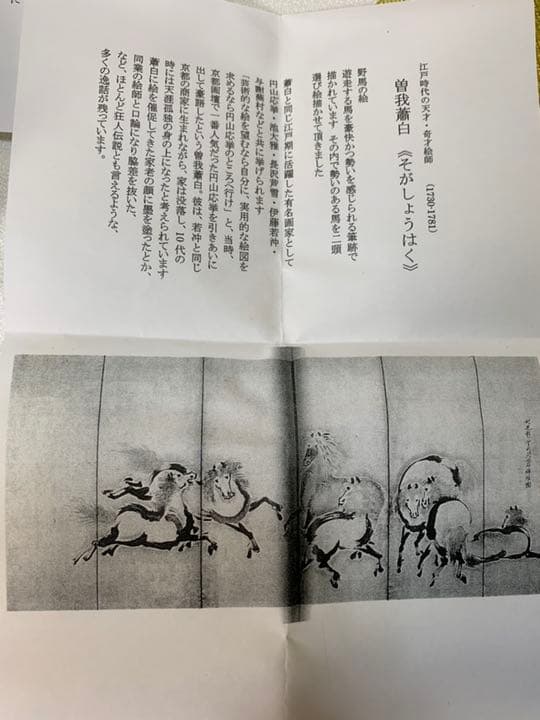 江戸時代の天才・奇才絵師
(1730-1781)
曽我蕭白 《そがしょうはく》
野馬の絵
遊走する馬を豪快かつ勢いを感じられる筆跡で
描かれています その内で勢いのある馬を二頭
選び絵描かせて頂きました
蕭白と同じ江戸期に活躍した有名画家として
円山応挙・池大雅・長沢芦雪・伊藤若冲・
与謝蕪村などと共に挙げられます
「芸術的な絵を望むなら自分に、実用的な絵図を
求めるなら円山応挙のところへ行け」と、当時、
京都画壇で一番人気だった円山応挙を引きあいに
出して豪語したという曽我蕭白。彼は、若冲と同じ
京都の商家に生まれながら、家は没落し、10代の
時には天涯孤独の身の上になったと考えられています
蕭白に絵を催促してきた家老の顔に墨を塗ったとか、
同業の絵師と口論になり脇差を抜いた、
など、ほとんど狂人伝説とも言えるような、
多くの逸話が残っています。
に